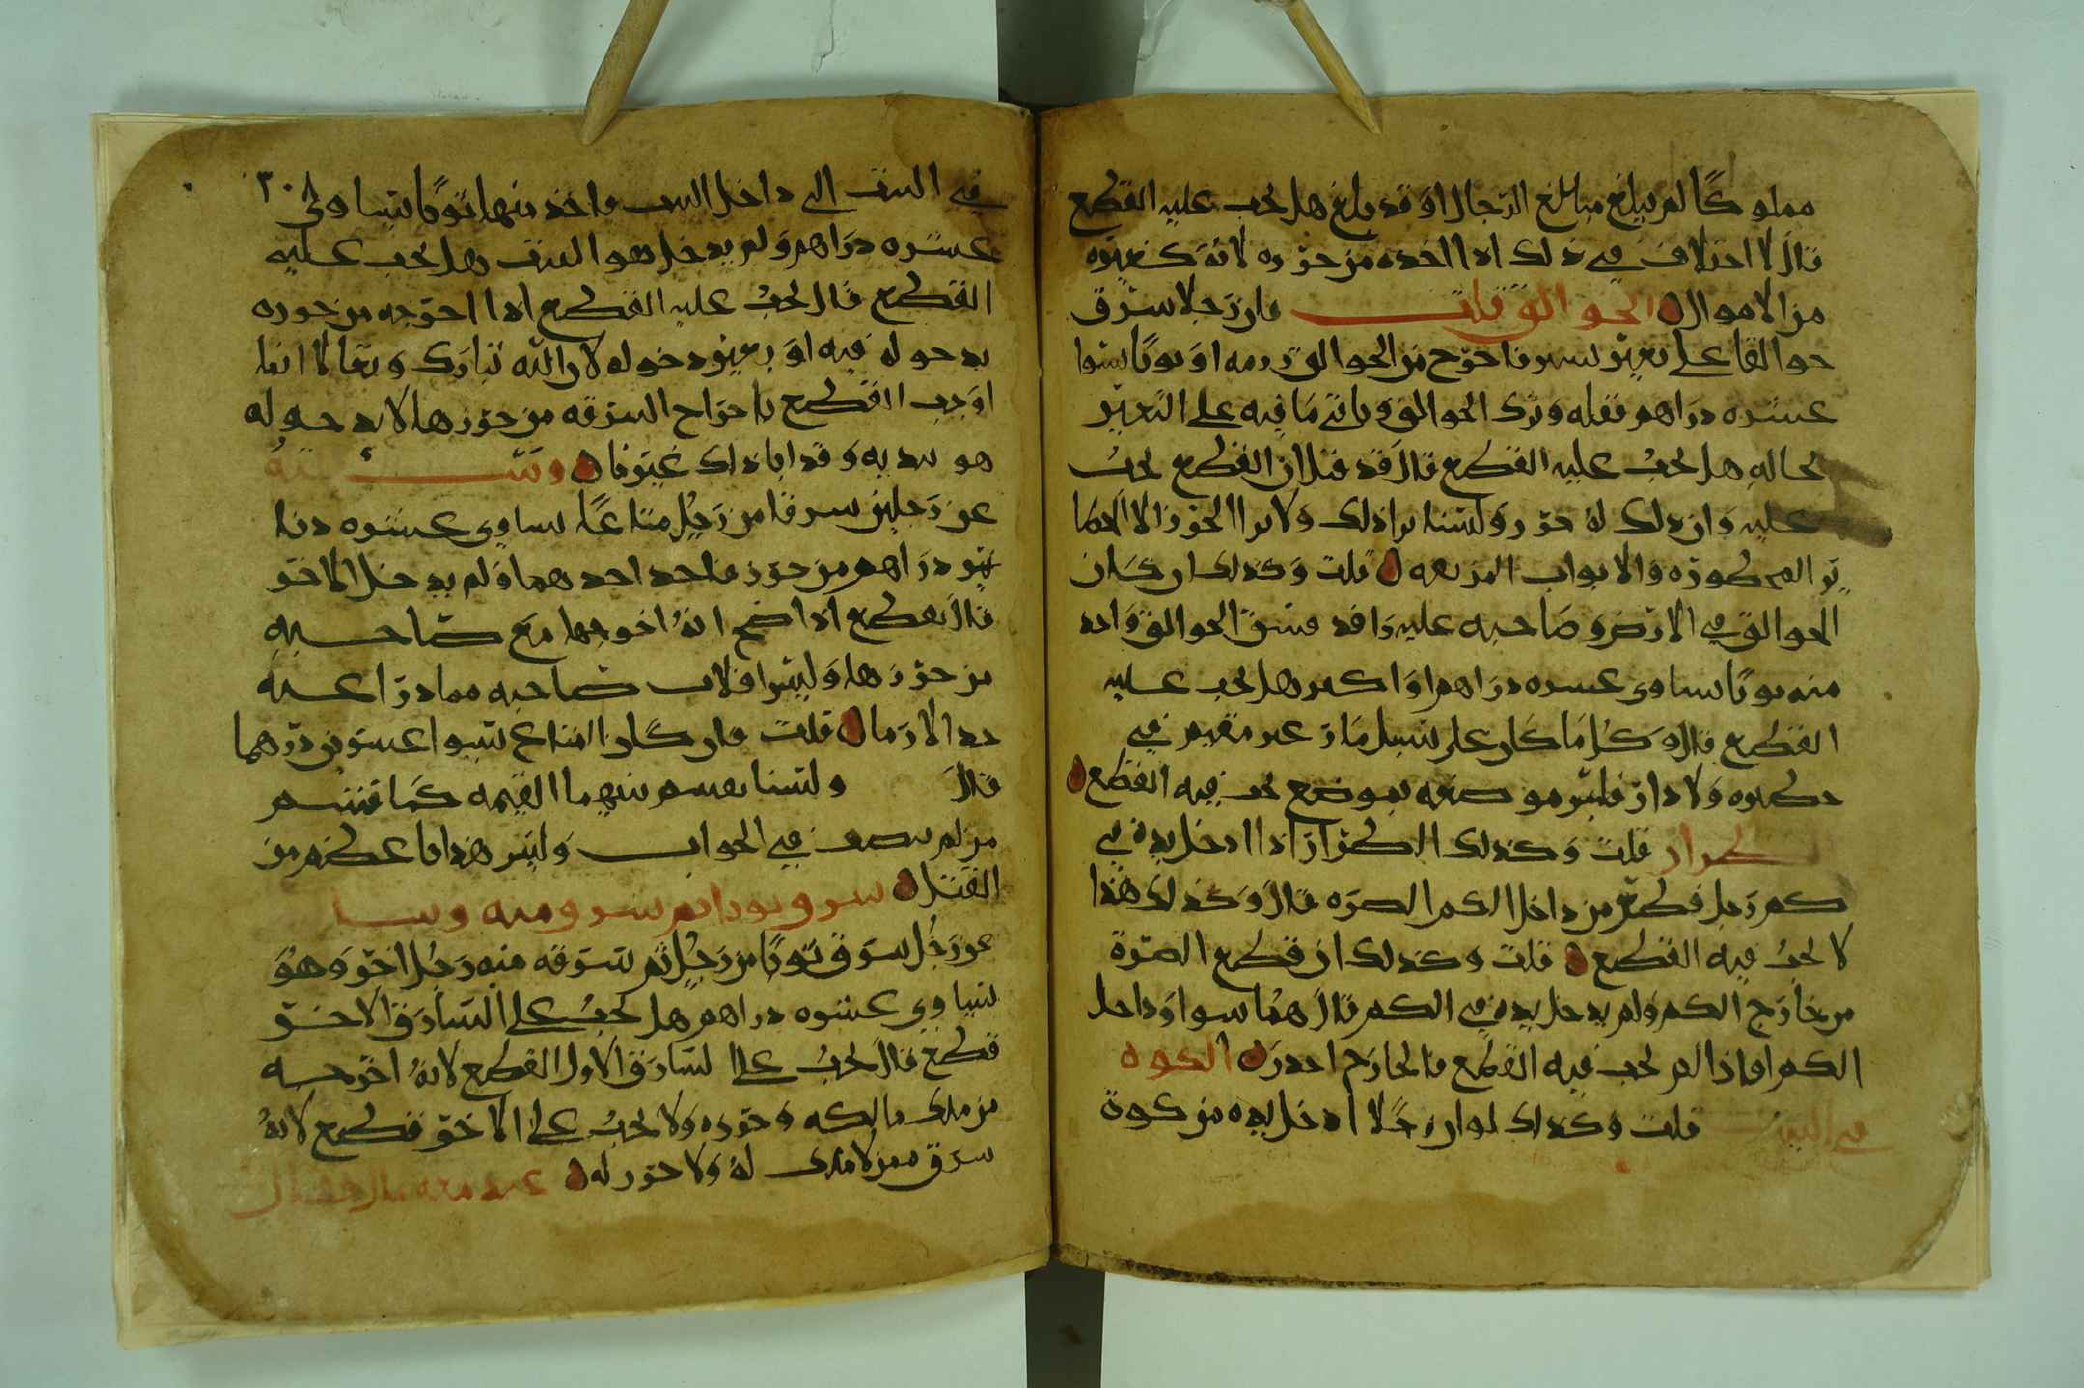 مملوكًا لم يبلغ مبالغ الرجال او قد بلغ هل يجب عليه القطع
قال لا اختلاف في ذلك اذا اخذه من حرزه لانه كغيره
من الاموال الجوالق قلت فان رجلا سرق
جوالقا على بعير لسرقا خرج من الجوالق رزمه او ثوبًا يسوا
عشره دراهم فقله وترك الجوالق وباقي ما فيه على البعير
بحاله هل يجب عليه القطع قال قد قيل ان القطع يجب
عليه وان ذلك له حرز ولسنا نرا ذلك ولا نرا الحرز الا الحظا
ير المحظوره والابواب المزلعه قلت وكذلك ان كان
الجوالق في الارض وصاحبه عليه راقد فشق الجوالق واخذ
منه ثوبًا يساوي عشره دراهم او اكثر هل يجب عليه
القطع قال كل ما كان على سبيل مار غير مقيم في
حظيره ولا دار فليس موضعه بموضع يجب فيه القطع
الطرار قلت وكذلك الطرار اذا ادخل يده في
كم رجل فقطع من داخل الكم الصره قال وكذلك هذا
لا يجب فيه القطع قلت وكذلك ان قطع الصرة
من خارج الكم ولم يدخل يده في الكم قال هما سوا وداخل
الكم اذا لم يجب فيه القطع فالخارج احدر الكوه
في البيت قلت وكذلك لو ان رجلا ادخل يده من كوة
في البيت الى داخل البيت فاخذ منها ثوبًا يساوي ٣٠٨
عشره دراهم ولم يدخل هو البيت هل يجب عليه
القطع قال يجب عليه القطع اذا اخرجه من حرزه
بدخوله فيه او بغير دخوله لان الله تبارك وتعالا انما
اوجب القطع باخراج السرقه من حرزها لا بدخوله
هو ببدنه وقد ابا ذلك غيرنا وسئل
عن رجلين سرقا من رجل متاعًا يساوي عشره دنا
نير دراهم من حرز فاخذ احدهما ولم يدخل الاخر
قال يقطع اذا صح انه اخرجها مع صاحبه
من حرزها وليس افلات صاحبه مما درا عنه
حد الازما قلت فان كان المتاع يسوا عشرين درهما
قال ولسنا نقسم بينهما القيمه كما قسم
من لم ينصف في الجواب وليس هذا باعظم من
القتل سرق ثوبا ثم سرق منه وسئل
عن رجل سرق ثوبًا من رجل ثم سرقه منه رجل اخر وهو
يساوي عشره دراهم هل يجب على السارق الاخر
قطع قال يجب على السارق الاول القطع لانه اخرجه
من ملك مالكه وحرزه ولا يجب على الاخر قطع لانه
سرق ممن لا ملك له ولا حرز له